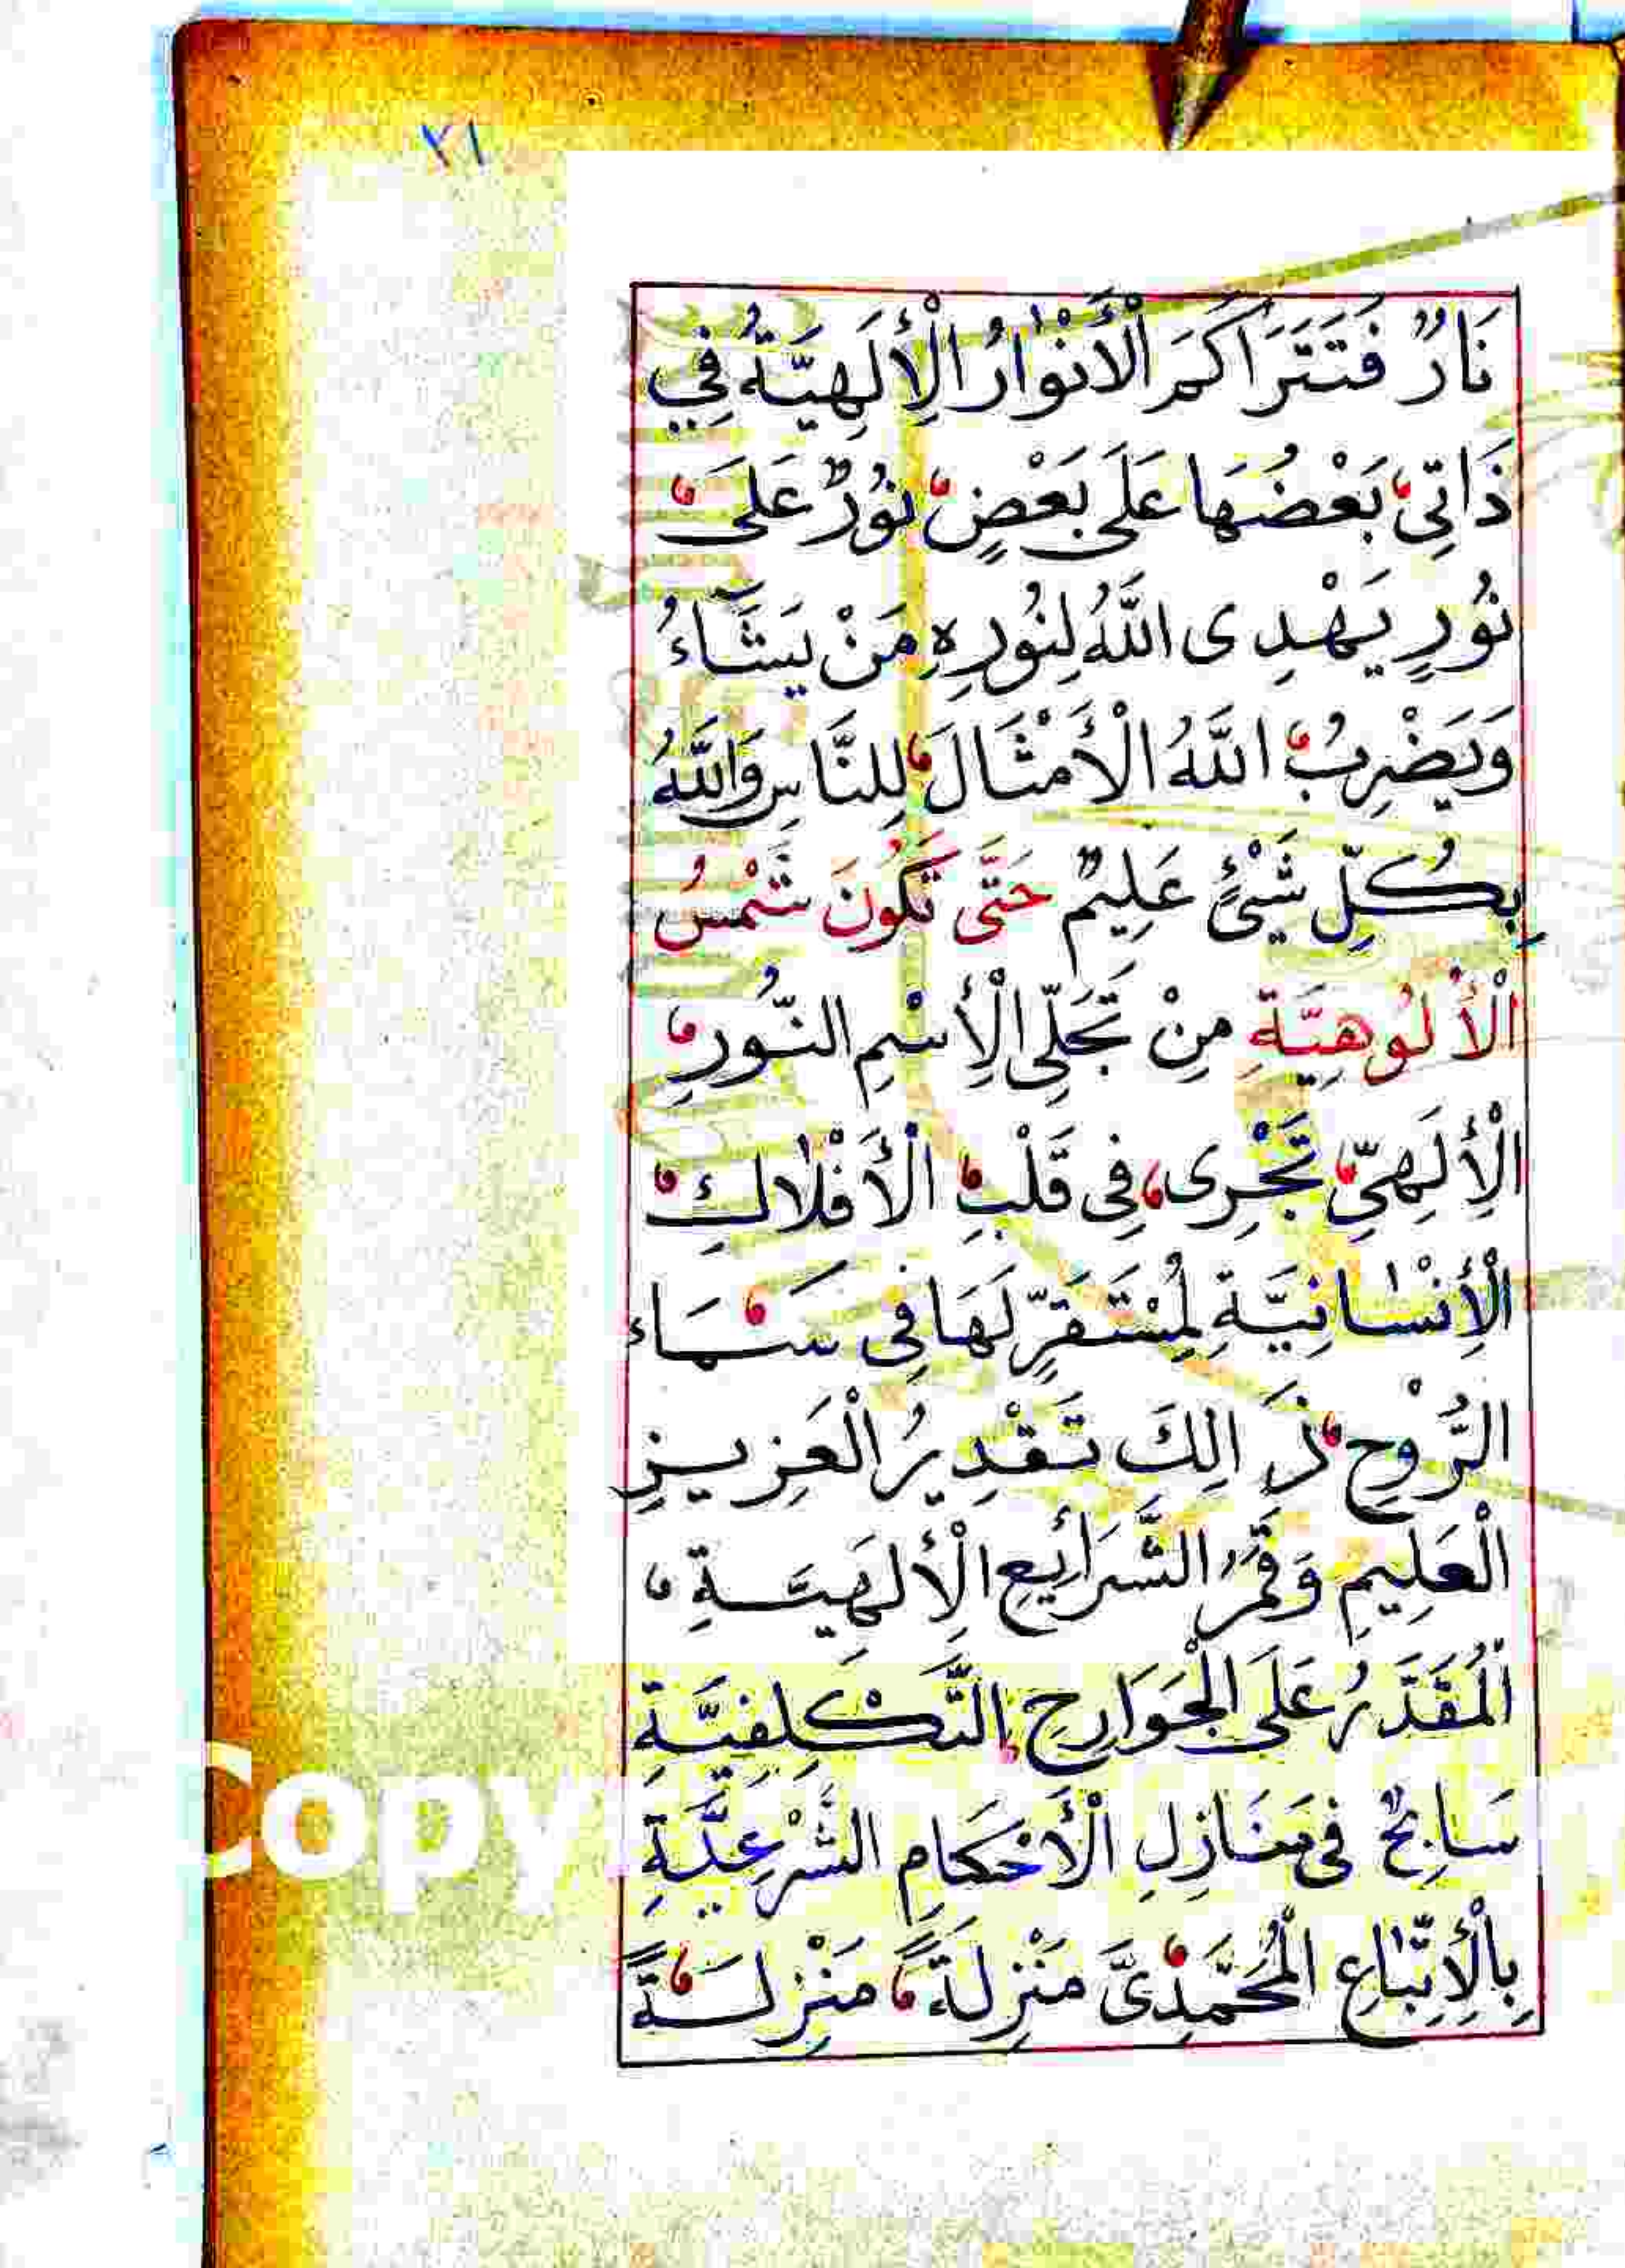 ٢١
نَارٌ فَتَتَرَاكَمَ الْأَنْوٰارُ الْإِلَهِيَّةُ فِي
ذَاتِي بَعْضُهَا عَلَى بَعْضٍ نُورٌ عَلَى
نُورٍ يَهْدِى اللَّهُ لِنُورِهِ مَنْ يَشَآءُ
وَيَضْرِبُ اللَّهُ الْأَمْثَالَ لِلنَّاسِ وَاللَّهُ
بِكُلِّ شَيْئٍ عَلِيمٌ حَتَّى تَكُونَ شَمْسُ
الْأُلُوهِيَّةِ مِنْ تَجَلِّى الْإِسْمِ النُّورِ
الْإِلَهِيِّ تَجْرِى فِى قَلْبِ الْأَفْلَاكِ
الْإِنْسٰانِيَّةِ لِمُسْتَقَرٍّ لَهَا فِى سَمَاء
الرُّوْحِ ذَالِكَ تَقْدِيرُ الْعَزِيزِ
الْعَلِيمِ وَقَمَرُ الشَّرَائِعِ الْأِلَهَيَّةِ
الْمُقَدَّرُ عَلَى الْجَوَارِحِ التَّكْلِفِيَّةِ
سَابِحٌ فِى مَنَازِلِ الْأَحْكَامِ الشَّرْعِيَّةِ
بِالْإِتِّبَاعِ الْمُحَمَّدِىَّ مَنْزِلَةً مَنْزِلَةً
Copy